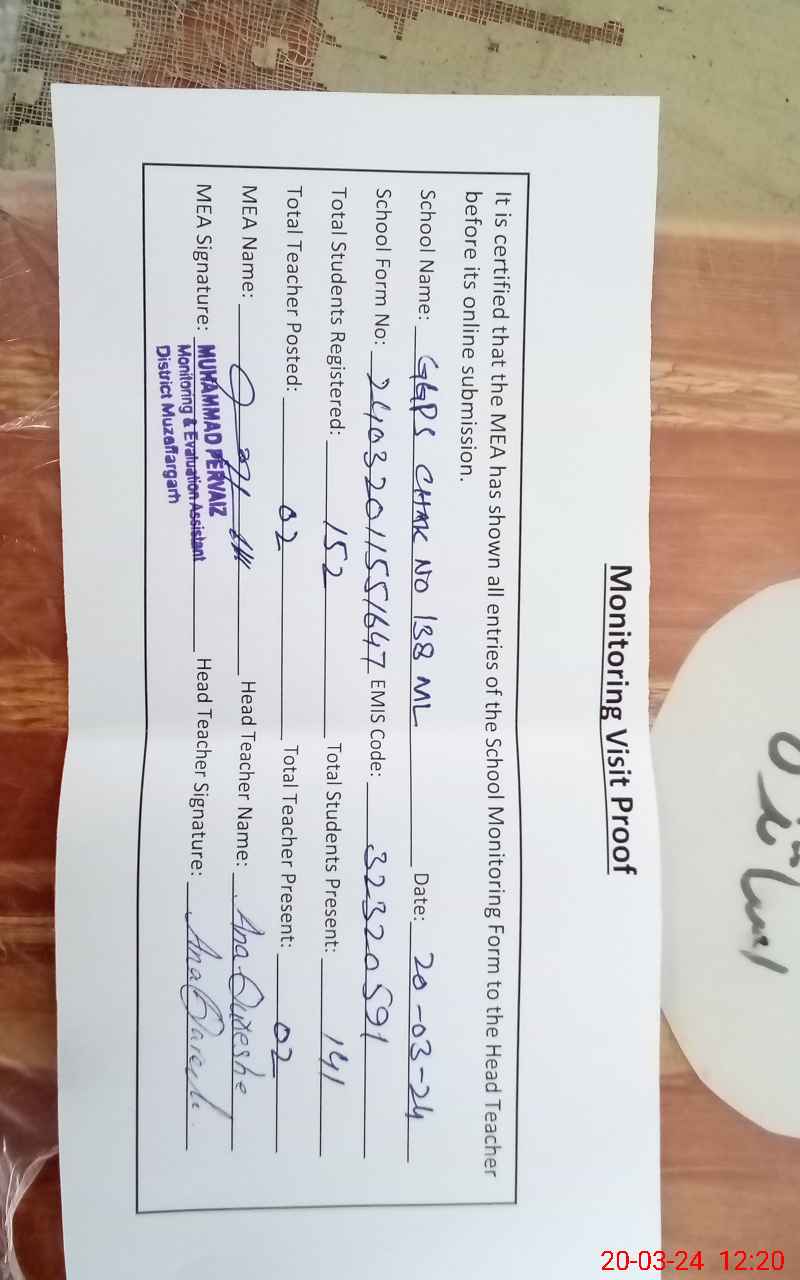 Monitoring Visit Proof
It is certified that the MEA has shown all entries of the School Monitoring Form to the Head Teacher
before its online submission.
School Name: GGPS CHAK NO 138 ML Date: 20-03-24
School Form No: 24032011551647 EMIS Code: 32320591
Total Students Registered: 152 Total Students Present: 141
Total Teacher Posted: 02 Total Teacher Present: 02
MEA Name: Head Teacher Name: Ana
MEA Signature: Head Teacher Signature: Ana
MUHAMMAD PERVAIZ
Monitoring & Evaluation Assistant
District Muzaffargarh
20-03-24 12:20